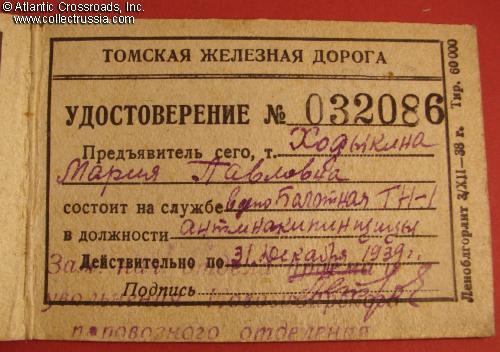 © Atlantic Crossroads, Inc.
www.collectrussia.com
ТОМСКАЯ ЖЕЛЕЗНАЯ ДОРОГА
УДОСТОВЕРЕНИЕ № 032086
Предъявитель сего, т. Ходыкина
Мария Павловна
состоит на службе в депо Болотная ТН-1
в должности антинакипинщицы
Действительно по 31 Декабря 1939 г.
Зам.
Подпись
паровозного отделения
Леноблгорлит 3/XII—38 г. Тир. 60 000